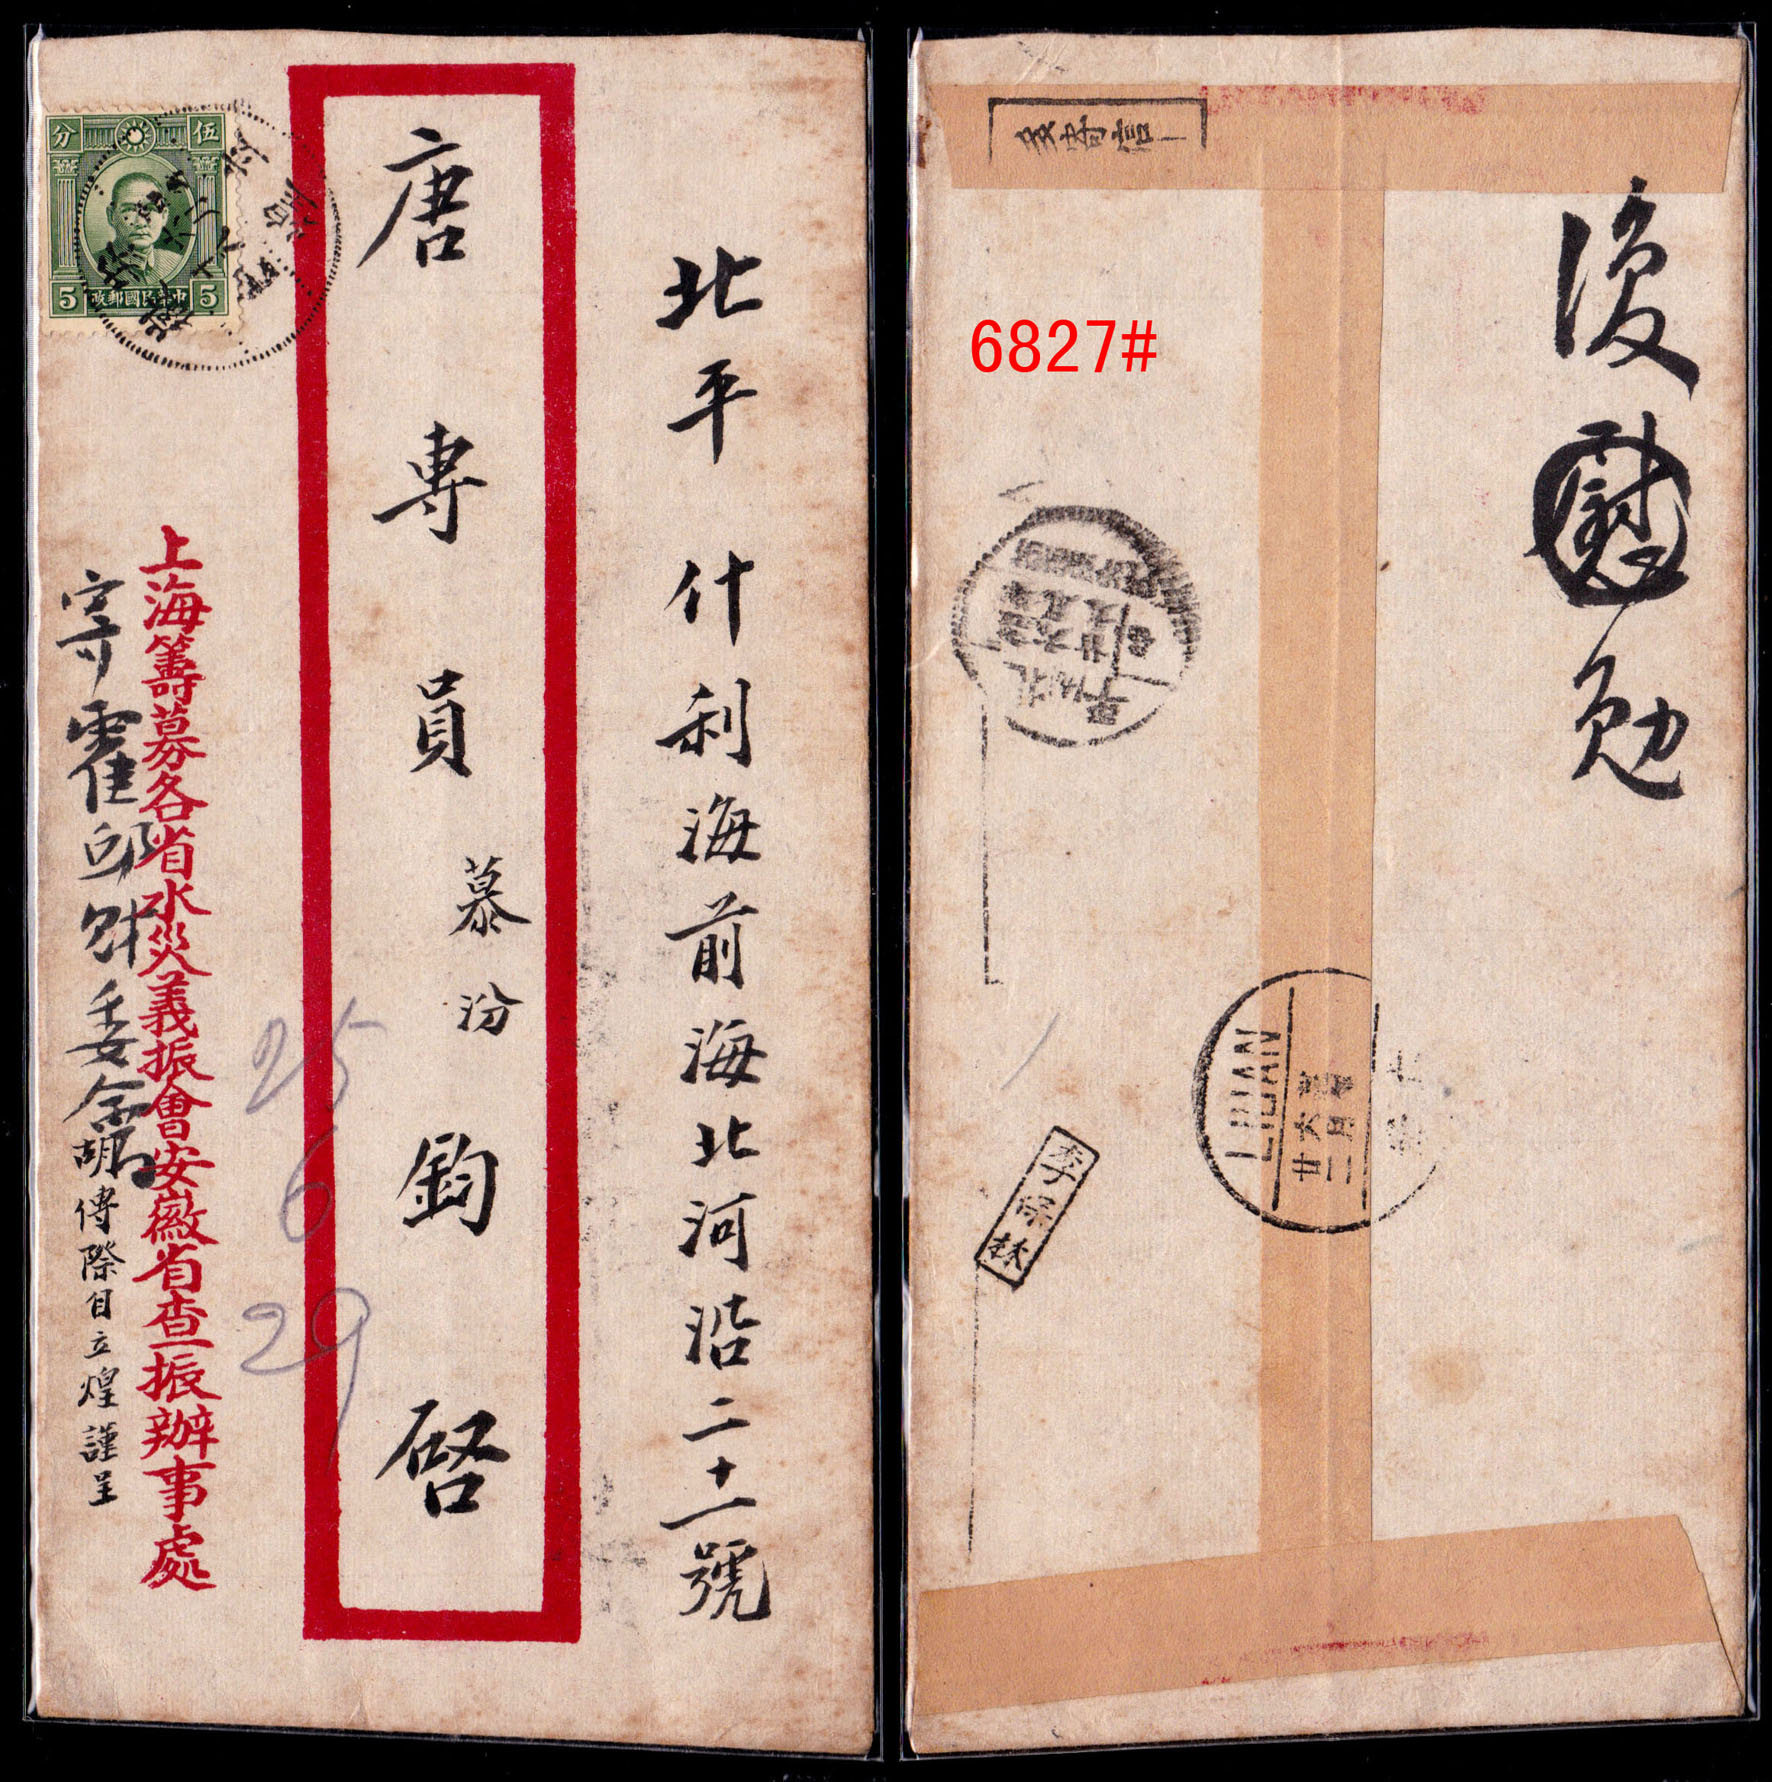 北平什利海前海北河沿二十一號
唐專員慕汾鈞啓
上海籌募各省水災義振會安徽省查振辦事處
寄霍邱財委會胡傳際自立煌謹呈
25
6
29
分 伍
5 中華民國郵政 5
後慰勉
6827#
李保林
LIHUAN
廿六年
二月